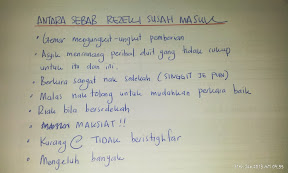 ANTARA SEBAB REZEKI SUSAH MASUK
• Gemar mengungkit-ungkit pemberian
• Asyik merancang perihal duit yang tidak cukup
untuk itu dan ini.
• Berkira sangat nak sedekah (SINGGIT JE PUN)
• Malas nak tolong untuk mudahkan perkara baik
• Riak bila bersedekah
• MAKSIAT!!
• Kurang @ TIDAK beristighfar
• Mengeluh banyak